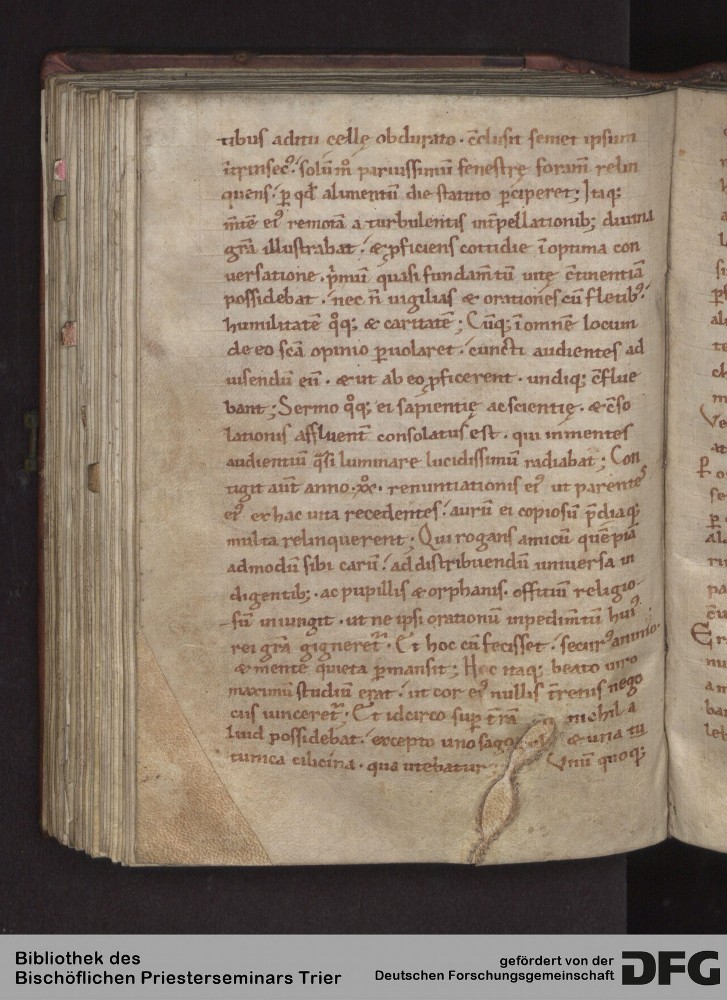 tibus aditu cellę obdurato · c̄clusit semet ipsum
īt̄nsecꝰ ; solūm̄ paruissimū fenestrę foram̄ relin
quens · ꝑ qd̄ alimentū die statuto ꝑciperet ; Itaq;
m̄te eiꝰ remotā a turbulentis inp̄ellationib; diuina
gr̄a illustrabat · & ꝓficiens cottidie īoptima con
uersatione · p̄mum quasi fundam̄tū uitę c̄tinentiā
possidebat · nec n̄ uigilias & orationes cū fletibꝰ ·
humilitatē qͦq; & caritatē ; Cūq; ī omnē locum
de eo sc̄a opinio ꝑuolaret · cuncti audientes ad
uisendū eū · & ut ab eo ꝓficerent · undiq; c̄flue
bant ; Sermo qͦq; ei sapientię ac scientię · & c̄so
lationis affluent̄ consolatus est · qui in mentes
audientiū qͣsi luminare lucidissimū radiabat ; Con
tigit aut̄ anno · xͦc · renuntiationis eiꝰ ut parentes
eiꝰ ex hac uita recedentes · aurū ei copiosū p̄diaq;
multa relinquerent ; Qui rogans amicū quēpiā
admodū sibi carū · ad distribuendū uniuersa in
digentib; · ac pupillis & orphanis · offitiū religio-
sū iniungit · ut ne ipsi orationū inpedim̄tū huiꝰ
rei gr̄a gigneret᷑ · Et hoc cū fecisset · securꝰ animo ·
& mente quieta ꝑmansit ; Hoc itaq; beato uiro
maximū studiū erat · ut cor eiꝰ nullis t̄renis nego
ciis uinceret᷑ · Et idcirco suꝑ t̄rā nichil a
liud possidebat · excepto uno sago & una tu
tunica cilicina · qua utebatur Unū quoq;
Bibliothek des
Bischöflichen Priesterseminars Trier
gefördert von der
Deutschen Forschungsgemeinschaft
DFG